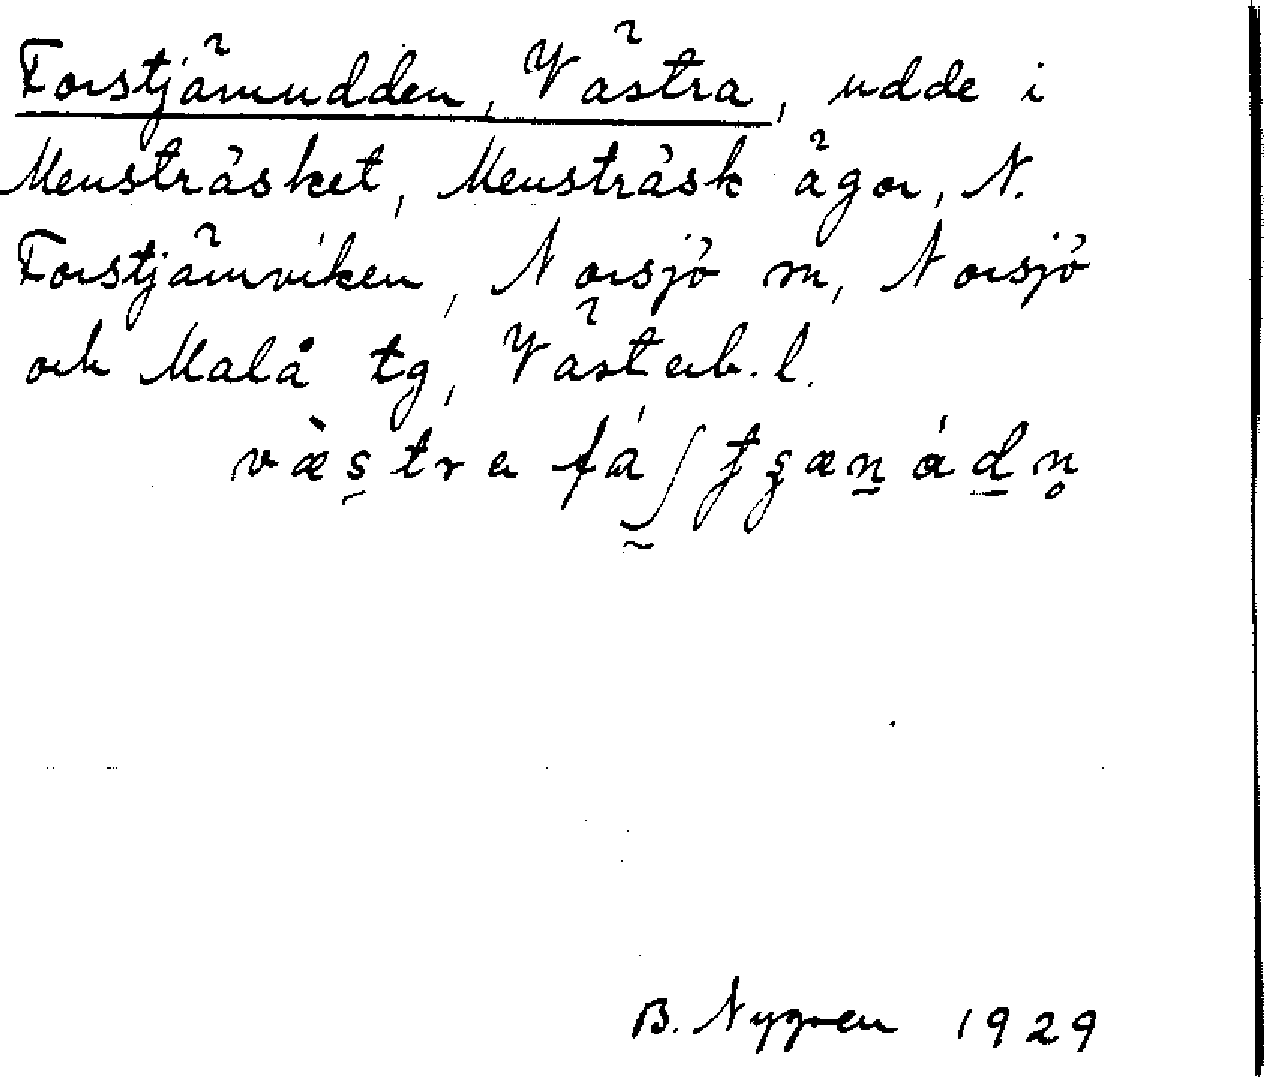 Forstjärnudden, Västra, udde i
Mensträsket, Mensträsk ägor, N.
Forstjärnviken, Norsjö sn, Norsjö
och Malå tg, Västerb. l.
B. Nygren 1929